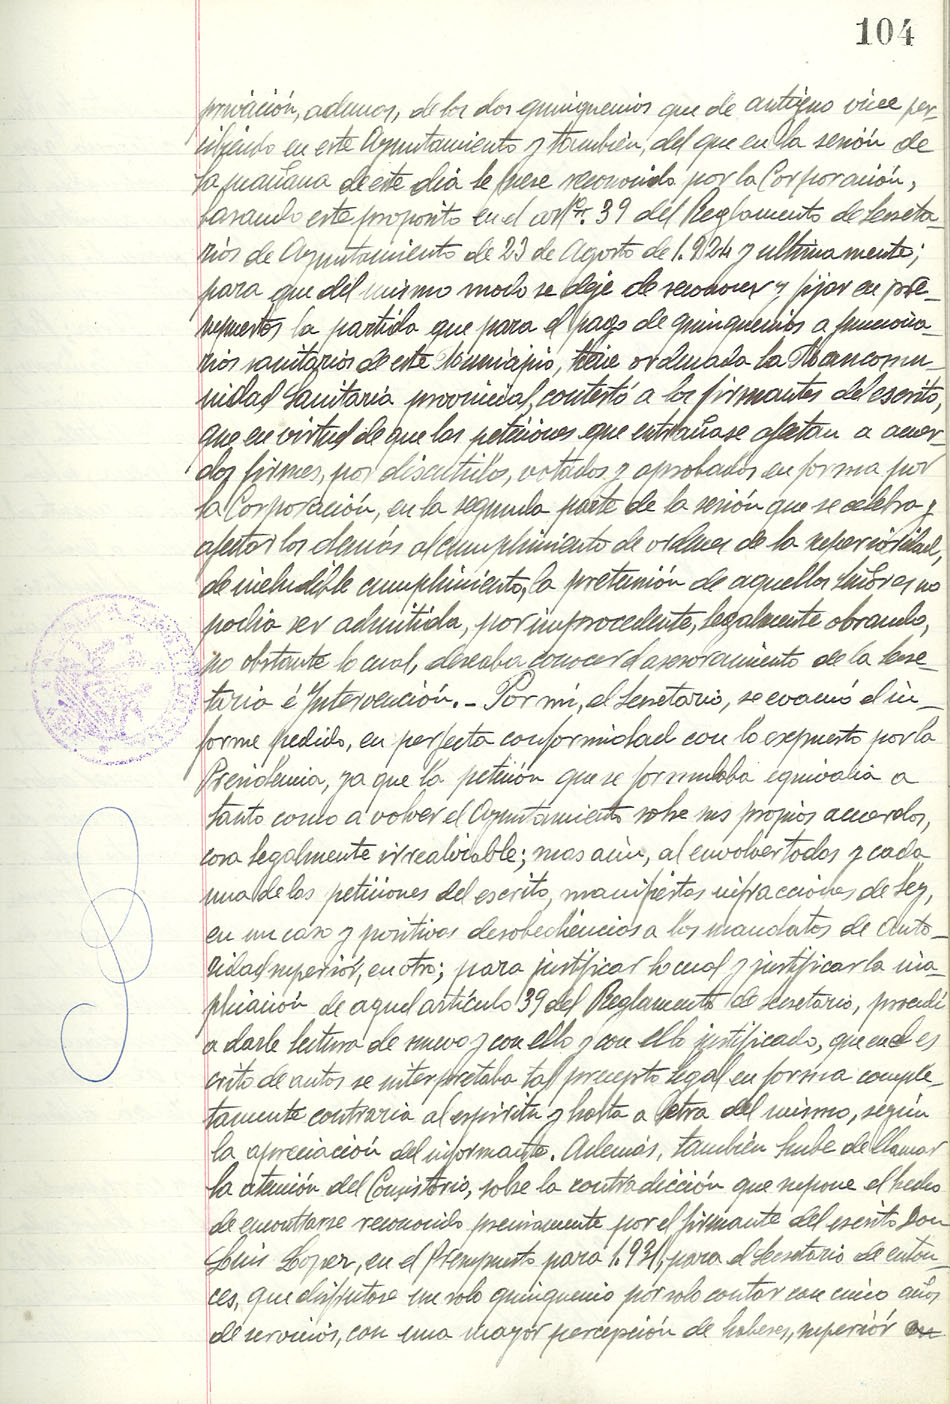 104
privación, ademas, de los dos quinquenios que de antiguo viene per-
cibiendo en este Ayuntamiento y también, del que en la sesión de
la mañana de este dia le fuese reconocido por la Corporación,
basando este proposito en el artº. 39 del Reglamento de Secreta-
rios de Ayuntamiento de 23 de Agosto de 1.924 y ultimamente;
para que del mismo modo se deje de reconocer y fijar en pre-
supuestos la partida que para el pago de quinquenios a funciona-
rios sanitarios de este Municipio, tiene ordenada la Mancomu-
nidad Sanitaria provincial, contestó a los firmantes del escrito,
que en virtud de que las peticiones que entrañase afectan a acuer-
dos firmes, por discutidos, votados y aprobados en forma por
la Corporación, en la segunda parte de la sesión que se celebra y
afectar los demás al cumplimiento de ordenes de la superioridad,
de ineludible cumplimiento, la pretensión de aquellos señores no
podia ser admitida, por improcedente, legalmente obrando,
no obstante lo cual, deseaba conocer el asesoramiento de la Secre-
taria é Intervención.- Por mi, el Secretario, se evacuó el in-
forme pedido, en perfecta conformidad con lo expuesto por la
Presidencia, ya que la petición que se formulaba equivalia a
tanto como a volver el Ayuntamiento sobre sus propios acuerdos,
cosa legalmente irrealizable; mas aún, al envolver todas y cada
una de las peticiones del escrito, manifiestas infracciones de Ley,
en un caso y positivas desobediencias a los mandatos de Auto-
ridad superior, en otro; para justificar lo cual y justificar la ina-
plicación de aquel artículo 39 del Reglamento de secretario, procedí
a darle lectura de nuevo y con ello y con ello justificado, que en el es
crito de autos se interpretaba tal precepto legal en forma comple-
tamente contraria al espiritu y hasta a letra del mismo, según
la apreciación del informante. Además, también hube de llamar
la atención del Consistorio, sobre la contradicción que supone el hecho
de encontrarse reconocido previamente por el firmante del escrito Don
Luis Lopez, en el Presupuesto para 1.931, para el Secretario de enton-
ces, que disfrutase un solo quinquenio por solo contar con cinco años
de servicios, con una mayor percepción de haberes, superiór en